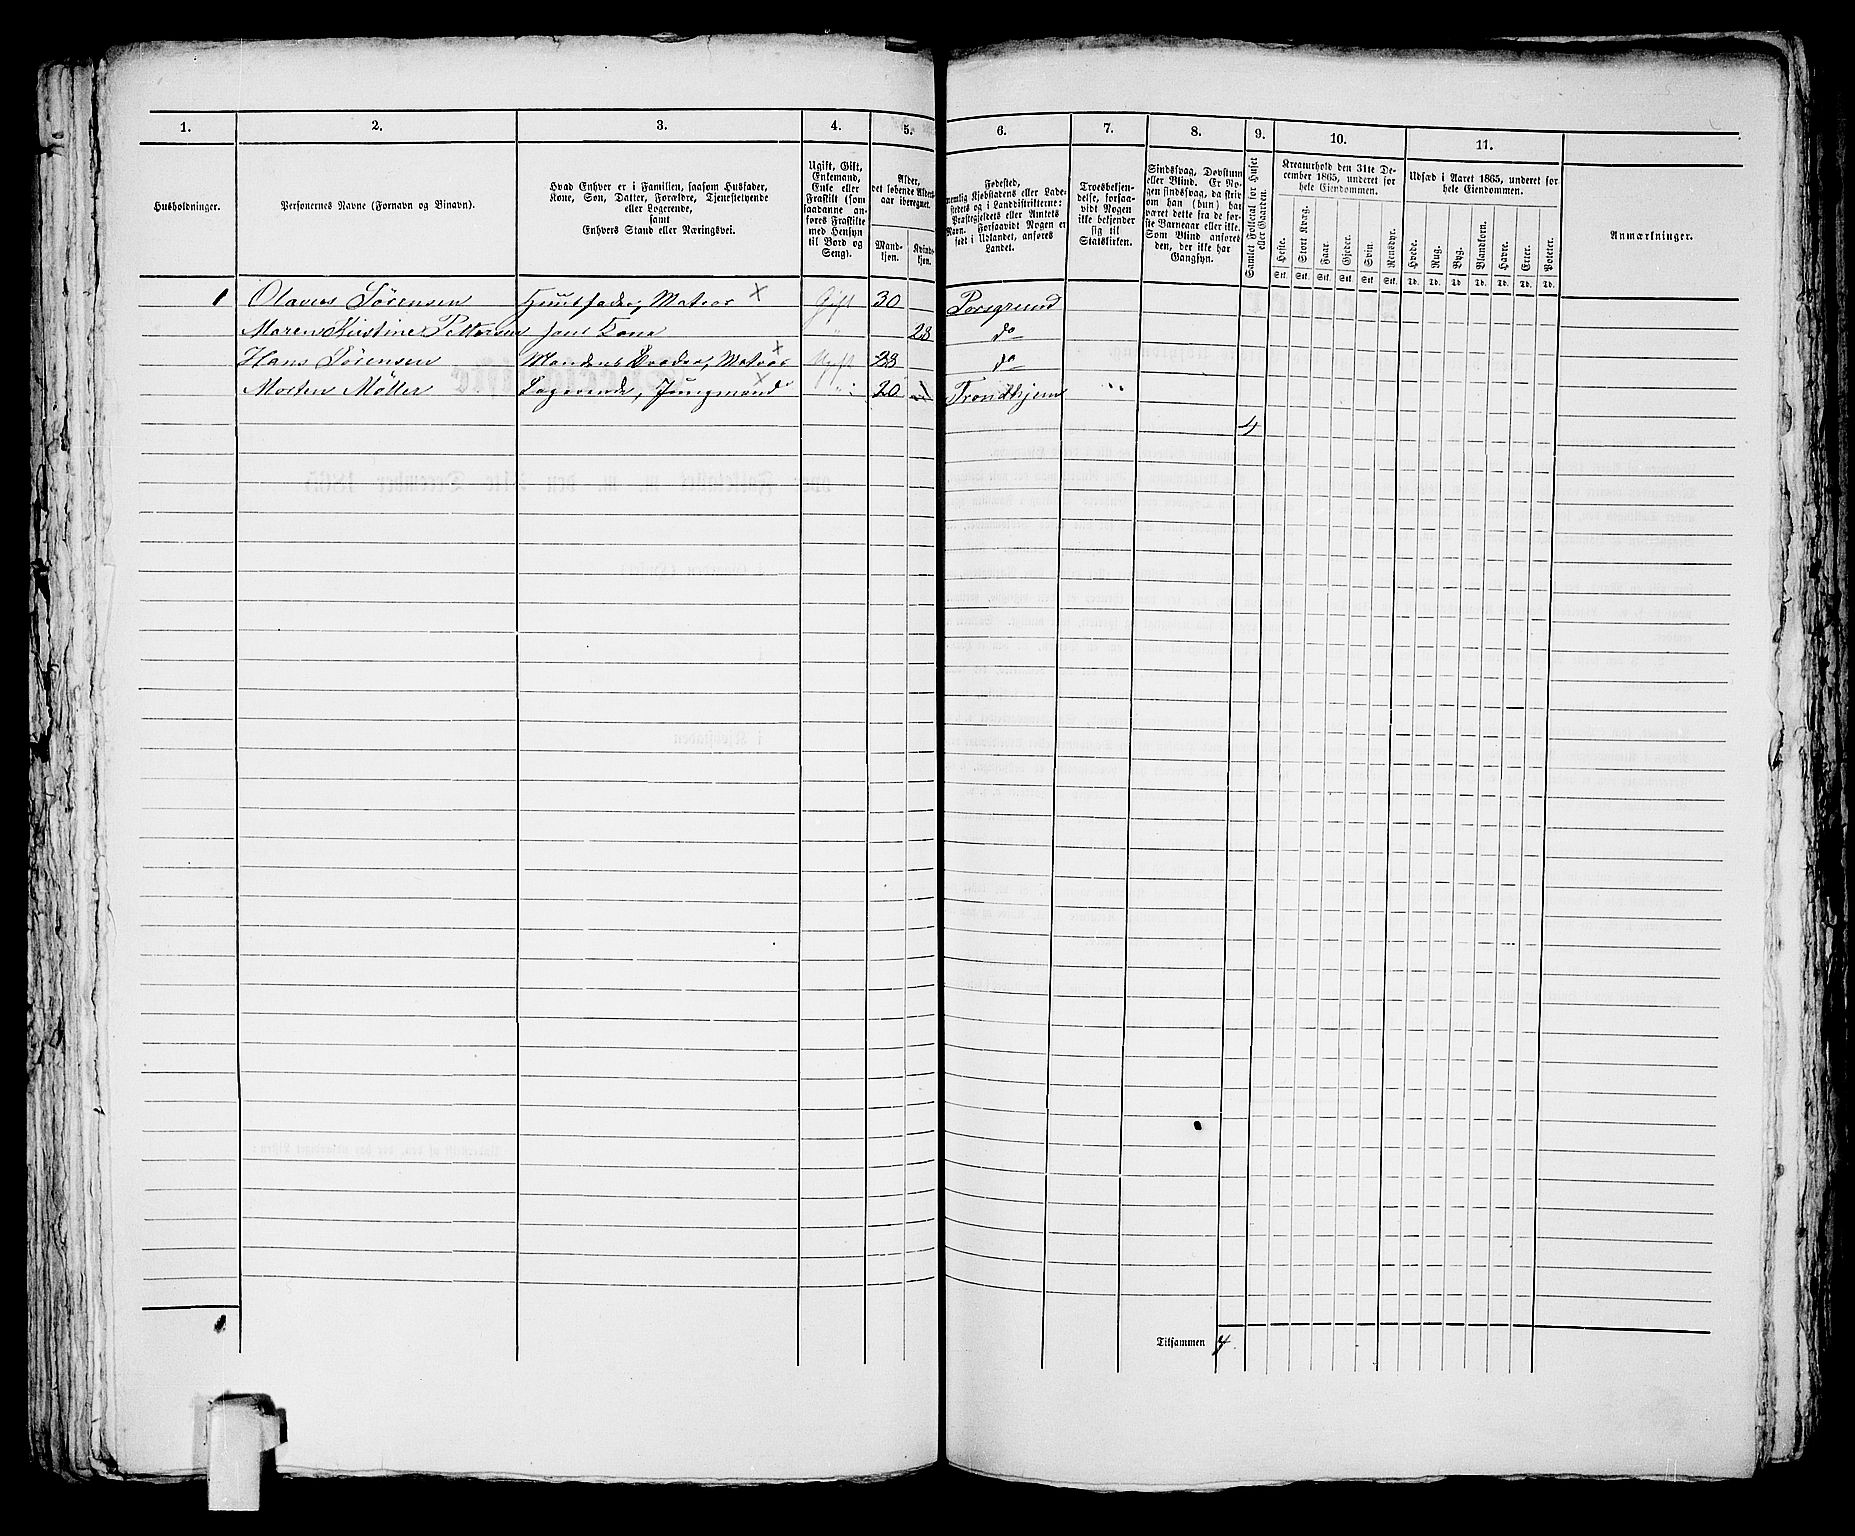 1. 2. 3. 4. 5. 6. 7. 8. 9. 10. 11.
Husholdninger.
Personernes Navne (Fornavn og Binavn).
Hvad Enhver er i Familien, saasom Husfader,
Kone, Søn, Datter, Forældre, Tjenestetyende
eller Logerende,
samt
Enhvers Stand eller Næringsvei.
Ugift, Gift,
Enkemand,
Enke eller
Fraskilt (som
saadanne an-
føres Fraskilte
med Hensyn
til Bord og
Seng).
Alder,
det løbende Alders-
aar iberegnet.
Mand-
kjøn.
Kvinde-
kjøn.
Fødested,
nemlig Kjøbstadens eller Lade-
stedets og i Landdistrikterne:
Præstegjeldets eller Amtets
Navn. Forsaavidt Nogen er
født i Udlandet, anføres
Landet.
Troesbekjen-
delse, forsaa-
vidt Nogen
ikke bekjender
sig til
Statskirken.
Sindssvag, Døvstum
eller Blind. Er No-
gen sindssvag, da skriv
om han (hun) har
været dette fra de før-
ste Barneaar eller ikke.
Som Blind anføres
den, der ikke har
Gangsyn.
Samlet Folketal for Huset
eller Gaarden.
Kreaturhold den 31te De-
cember 1865, underet for
hele Eiendommen.
Heste. Stort Kvæg. Faar. Gjeder. Svin. Rensdyr.
Stk. Stk. Stk. Stk. Stk. Stk.
Udsæd i Aaret 1865, underet for
hele Eiendommen.
Hvede. Rug. Byg. Blandkorn. Havre. Erter. Poteter.
Td. Td. Td. Td. Td. Td. Td.
Anmærkninger.
1 Olaves Sørensen Huusfader, Matros × Gift 30 Porsgrund
Maren Kirstine Pettersen hans Kone " 28 do
Hans Sørensen Mandens Broder, Matros × Ugift do
Morten Møller Logerende, Jungmand × " 20 Trondhjem "
4
Tilsammen 4